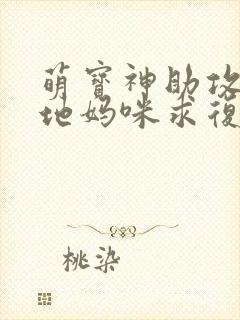 萌寶神助攻
地媽咪求復
桃染